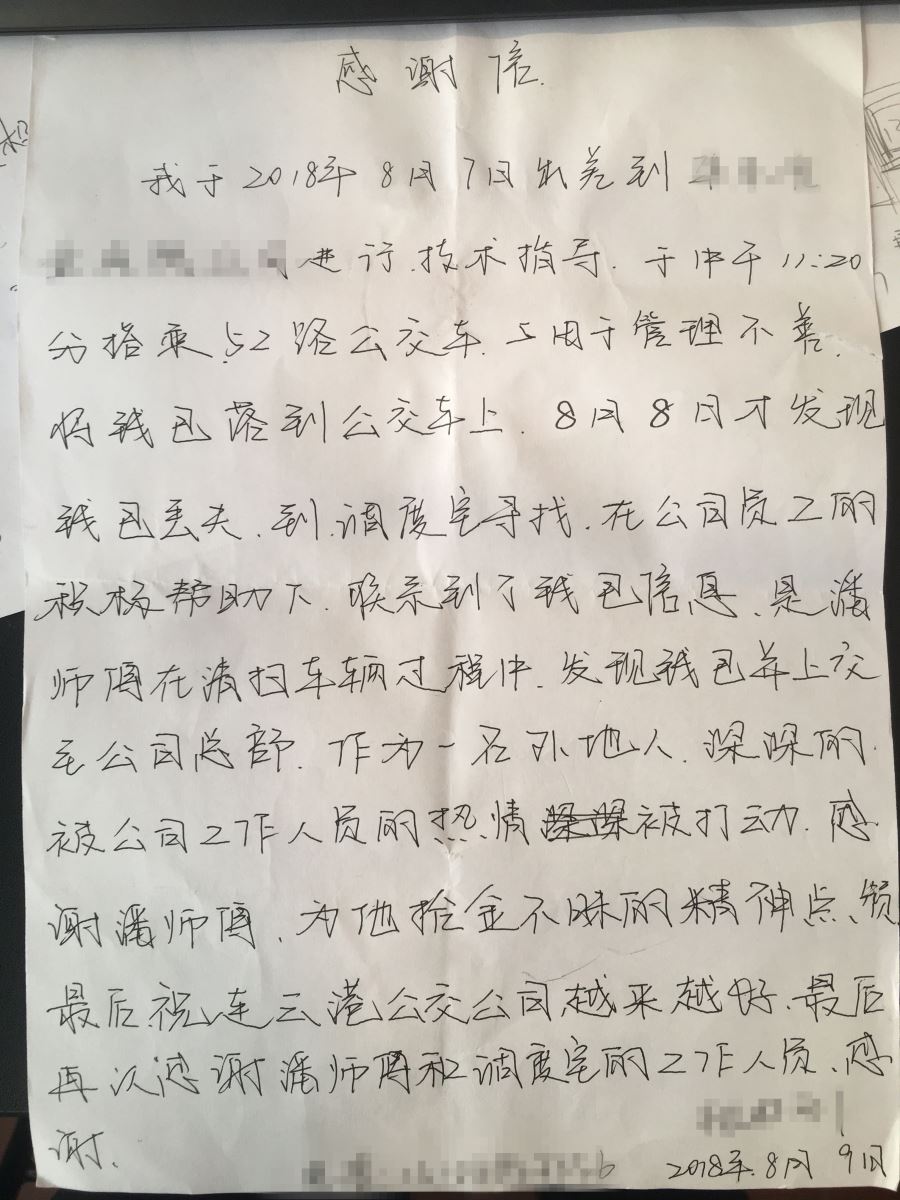 感谢信.
我于2018年8月7日出差到
进行技术指导.于中午11:20
分搭乘52路公交车.由于管理不善.
将钱包落到公交车上.8月8日才发现
钱包丢失、到调度室寻找.在公司员工的
积极帮助下.联系到了钱包信息、是潘
师傅在清扫车辆过程中.发现钱包并上交
至公司总部.作为一名外地人.深深的
被公司工作人员的热情被打动.感
谢潘师傅、为他拾金不昧的精神点赞
最后祝连云港公交公司越来越好、最后
再次感谢潘师傅和调度室的工作人员、感
谢.
2018年.8月9日